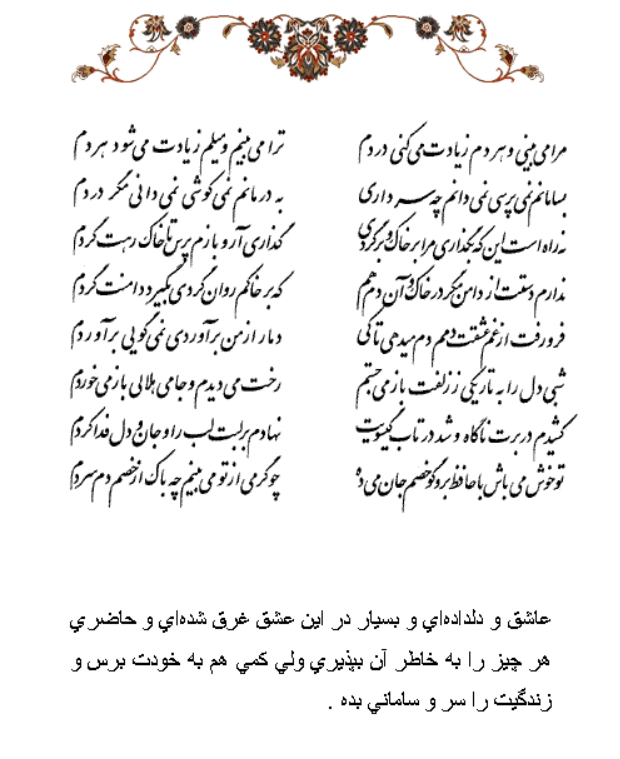 مرا می بینی و هر دم زیادت می کنی دردم ترا می بینم و میلم زیادت می شود هر دم
بسامانم نمی پرسی نمی دانم چه سر داری به درمانم نمی کوشی نمی دانی مگر دردم
نه راه است این که بگذاری مرا بر خاک و بگریزی گذاری آر و بازم پرس تا خاک رهت گردم
ندارم دستت از دامن مگر در خاک و آن دم هم که بر خاکم روان گردی بگیرد دامنت گردم
فرو رفت از غم عشقت دمم دم میدهی تا کی دمار از من برآوردی نمی گویی برآوردم
شبی دل را به تاریکی ز زلفت باز می جستم رخت می دیدم و جامی هلالی باز می خوردم
کشیدم در برت ناگاه و شد در تاب گیسویت نهادم بر لبت لب را و جان و دل فدا کردم
تو خوش می باش با حافظ برو گو خصم جان می ده چو گرمی از تو می بینم چه باک از خصم دم سردم
عاشق و دلداده‌اي و بسيار در اين عشق غرق شده‌اي و حاضري
هر چيز را به خاطر آن بپذيري ولي كمي هم به خودت برس و
زندگيت را سر و ساماني بده .